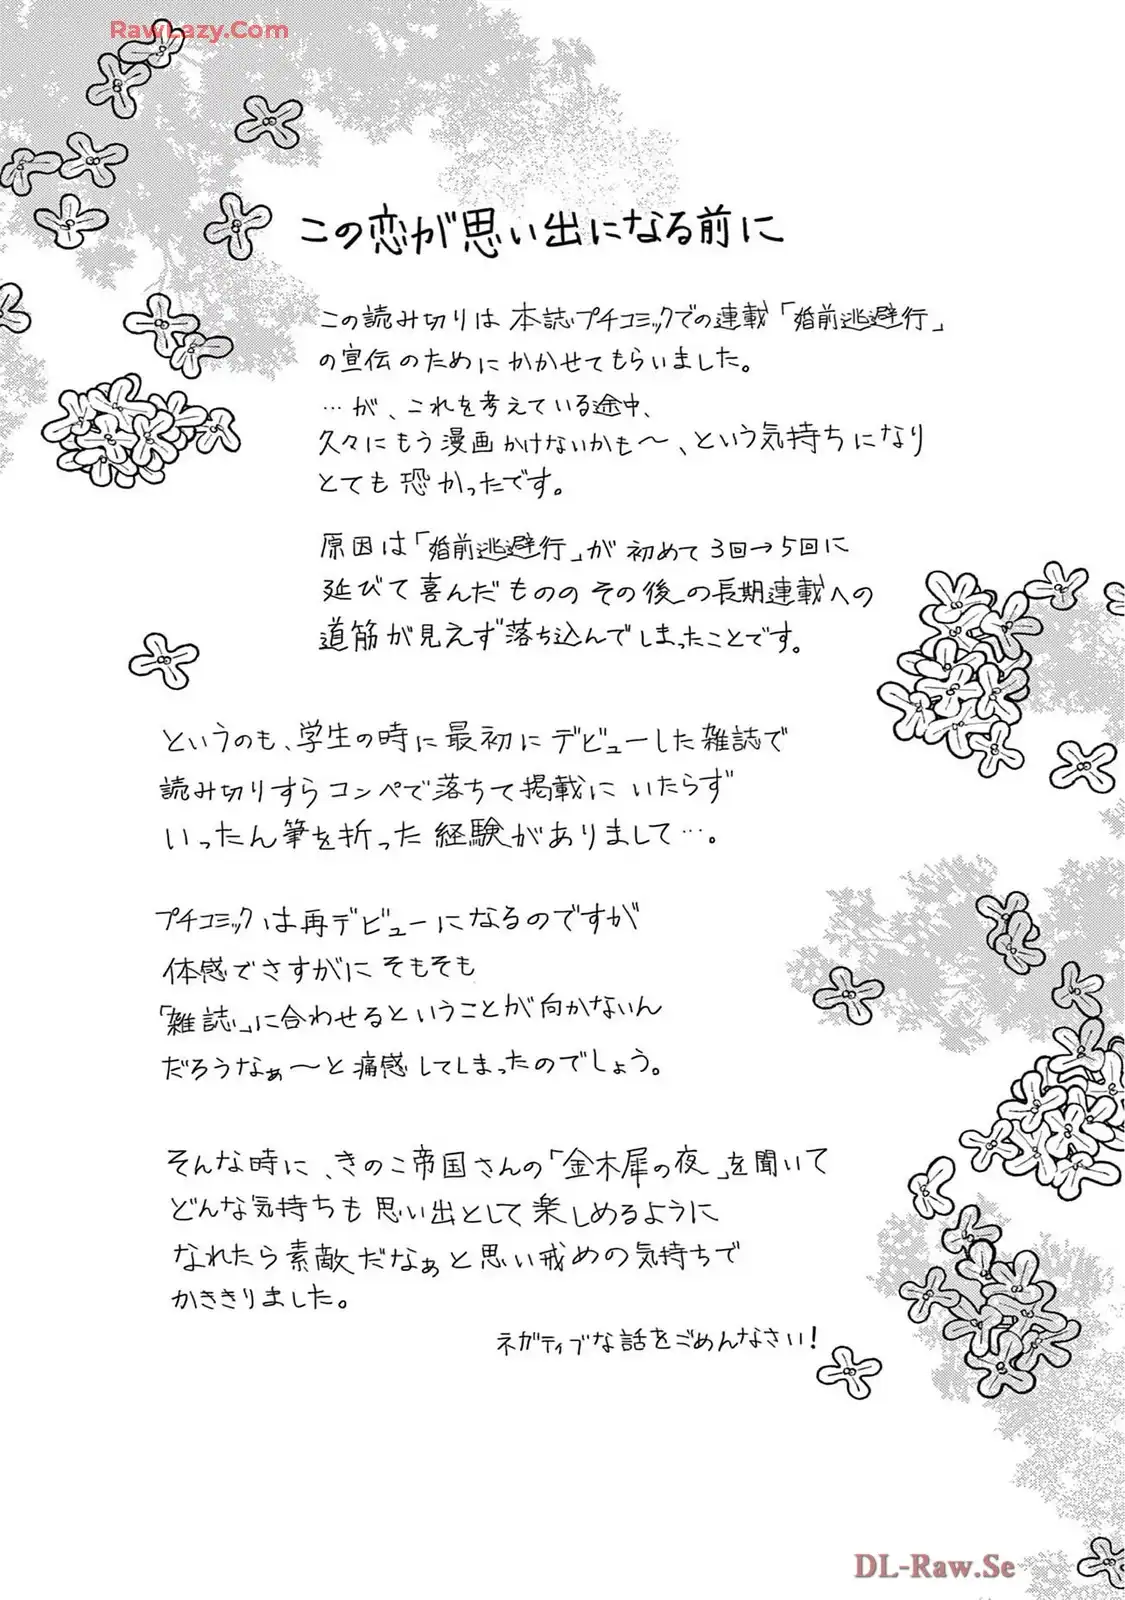 RawLazy.Com
この恋が思い出になる前に
この読み切りは本誌プチコミックでの連載「婚前逃避行」
の宣伝のためにかかせてもらいました。
…が、これを考えている途中、
久々にもう漫画かけないかも〜、という気持ちになり
とても恐かったです。
原因は「婚前逃避行」が初めて3回→5回に
延びて喜んだもののその後の長期連載への
道筋が見えず落ち込んでしまったことです。
というのも、学生の時に最初にデビューした雑誌で
読み切りすらコンペで落ちて掲載にいたらず
いったん筆を折った経験がありまして…。
プチコミックは再デビューになるのですが
体感でさすがにそもそも
「雑誌」に合わせるということが向かないん
だろうなぁ〜と痛感してしまったのでしょう。
そんな時に、きのこ帝国さんの「金木犀の夜」を聞いて
どんな気持ちも思い出として楽しめるように
なれたら素敵だなぁと思い戒めの気持ちで
かききりました。
ネガティブな話をごめんなさい!
DL-Raw.Se